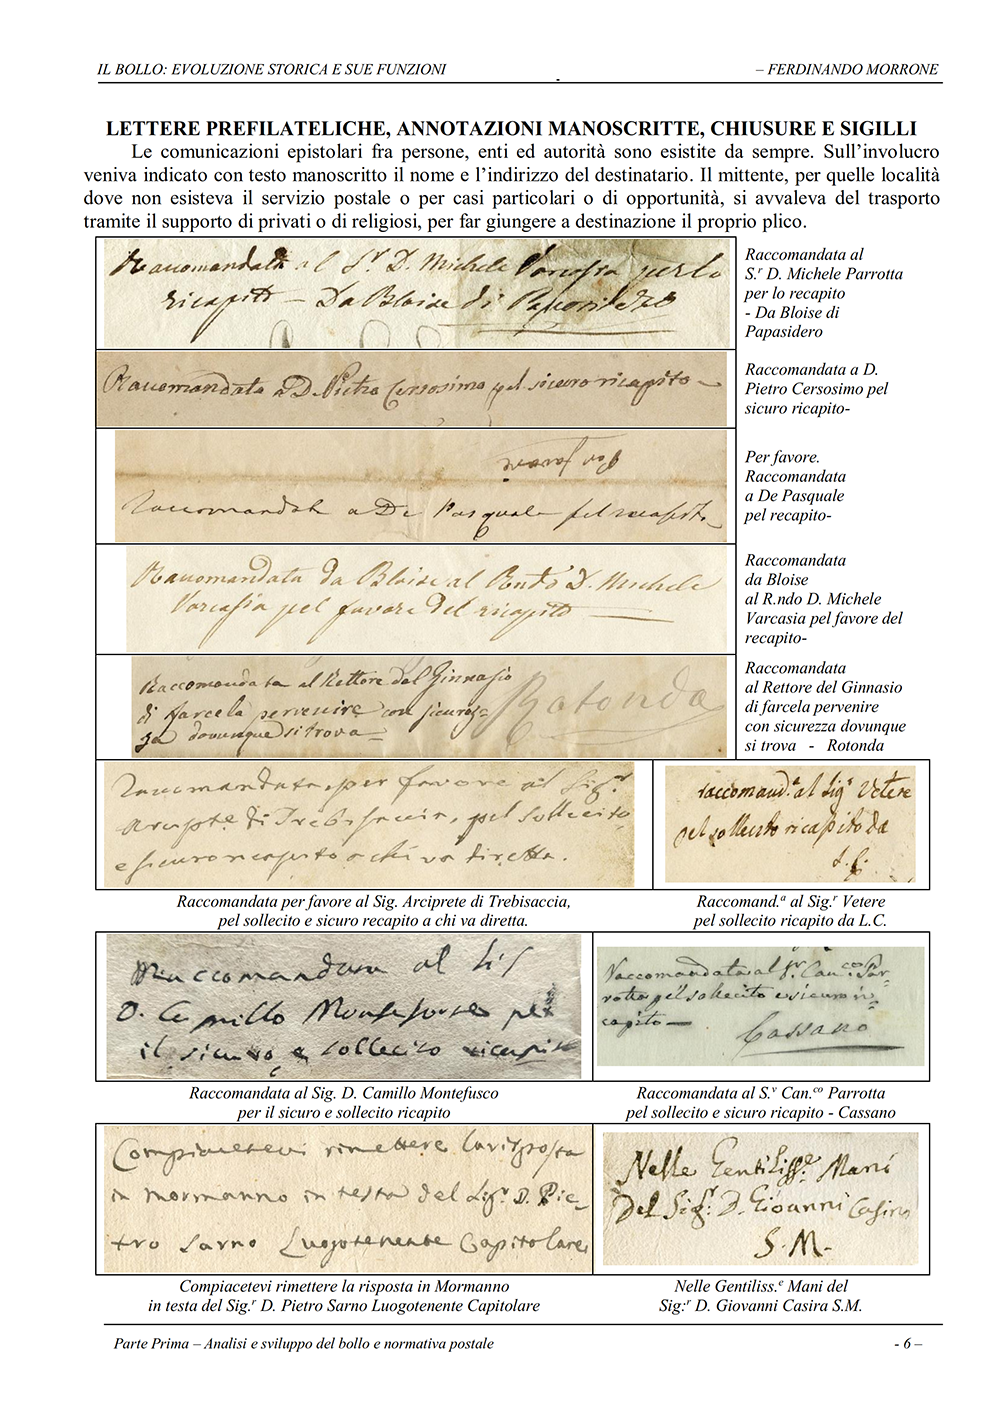 IL BOLLO: EVOLUZIONE STORICA E SUE FUNZIONI – FERDINANDO MORRONE
LETTERE PREFILATELICHE, ANNOTAZIONI MANOSCRITTE, CHIUSURE E SIGILLI
Le comunicazioni epistolari fra persone, enti ed autorità sono esistite da sempre. Sull’involucro
veniva indicato con testo manoscritto il nome e l’indirizzo del destinatario. Il mittente, per quelle località
dove non esisteva il servizio postale o per casi particolari o di opportunità, si avvaleva del trasporto
tramite il supporto di privati o di religiosi, per far giungere a destinazione il proprio plico.
Raccomandata al Sr. D. Michele Varcasia per lo
ricapito – Da Bloise di Papasidero
Raccomandata al
S.r D. Michele Parrotta
per lo recapito
- Da Bloise di
Papasidero
Raccomandata a D. Pietro Cersosimo pel sicuro ricapito –
Raccomandata a D.
Pietro Cersosimo pel
sicuro ricapito-
Per favore
Raccomandata a De Pasquale pel recapito
Per favore.
Raccomandata
a De Pasquale
pel recapito-
Raccomandata da Bloise al Rndo D. Michele
Varcasia pel favore del ricapito –
Raccomandata
da Bloise
al R.ndo D. Michele
Varcasia pel favore del
recapito-
Raccomandata al Rettore del Ginnasio
di farcela pervenire con sicurez=
za dovunque si trova =
Rotonda
Raccomandata
al Rettore del Ginnasio
di farcela pervenire
con sicurezza dovunque
si trova - Rotonda
Raccomandata per favore al Sig.r
Arcipte. di Trebisaccia, pel sollecito
e sicuro ricapito a chi va diretta.
raccomand.a al Sigr Vetere
pel sollecito ricapito da
Raccomandata per favore al Sig. Arciprete di Trebisaccia,
pel sollecito e sicuro recapito a chi va diretta.
Raccomand.a al Sig.r Vetere
pel sollecito ricapito da L.C.
Raccomandata al Sig
D. Camillo Montefusco per
il sicuro e sollecito ricapito
Raccomandata al Sr. Can.co Par=
rotta pel sollecito e sicuro ri=
capito –
Cassano
Raccomandata al Sig. D. Camillo Montefusco
per il sicuro e sollecito ricapito
Raccomandata al S.v Can.co Parrotta
pel sollecito e sicuro ricapito - Cassano
Compiacetevi rimettere la risposta
in Mormanno in testa del Sig.r D. Pie=
tro Sarno Luogotenente Capitolare
Nelle Gentiliss.e Mani
Del Sig.r D. Giovanni Casira
S. M.
Compiacetevi rimettere la risposta in Mormanno
in testa del Sig.r D. Pietro Sarno Luogotenente Capitolare
Nelle Gentiliss.e Mani del
Sig:r D. Giovanni Casira S.M.
Parte Prima – Analisi e sviluppo del bollo e normativa postale - 6 –